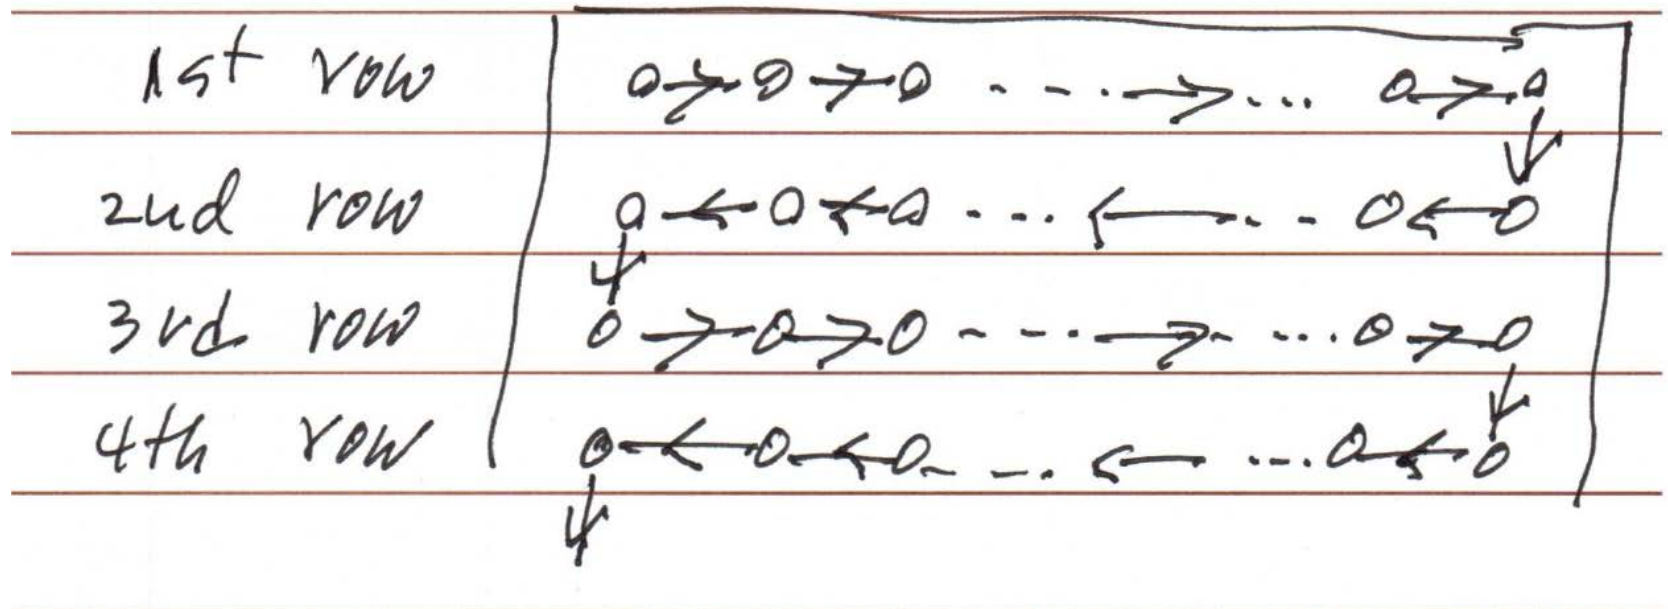 1st row
2nd row
3rd row
4th row